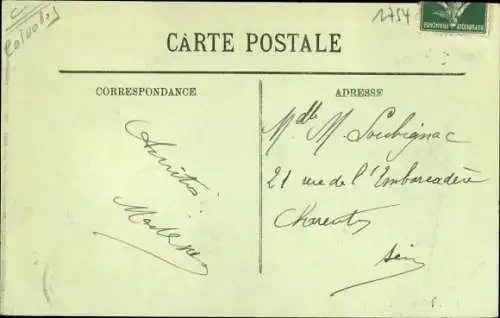 Calvados
1754
CARTE POSTALE
CORRESPONDANCE
ADRESSE
Amitiés
Mdlle M. Soubignac
21 rue de l'Embarcadère
Charenton
Seine